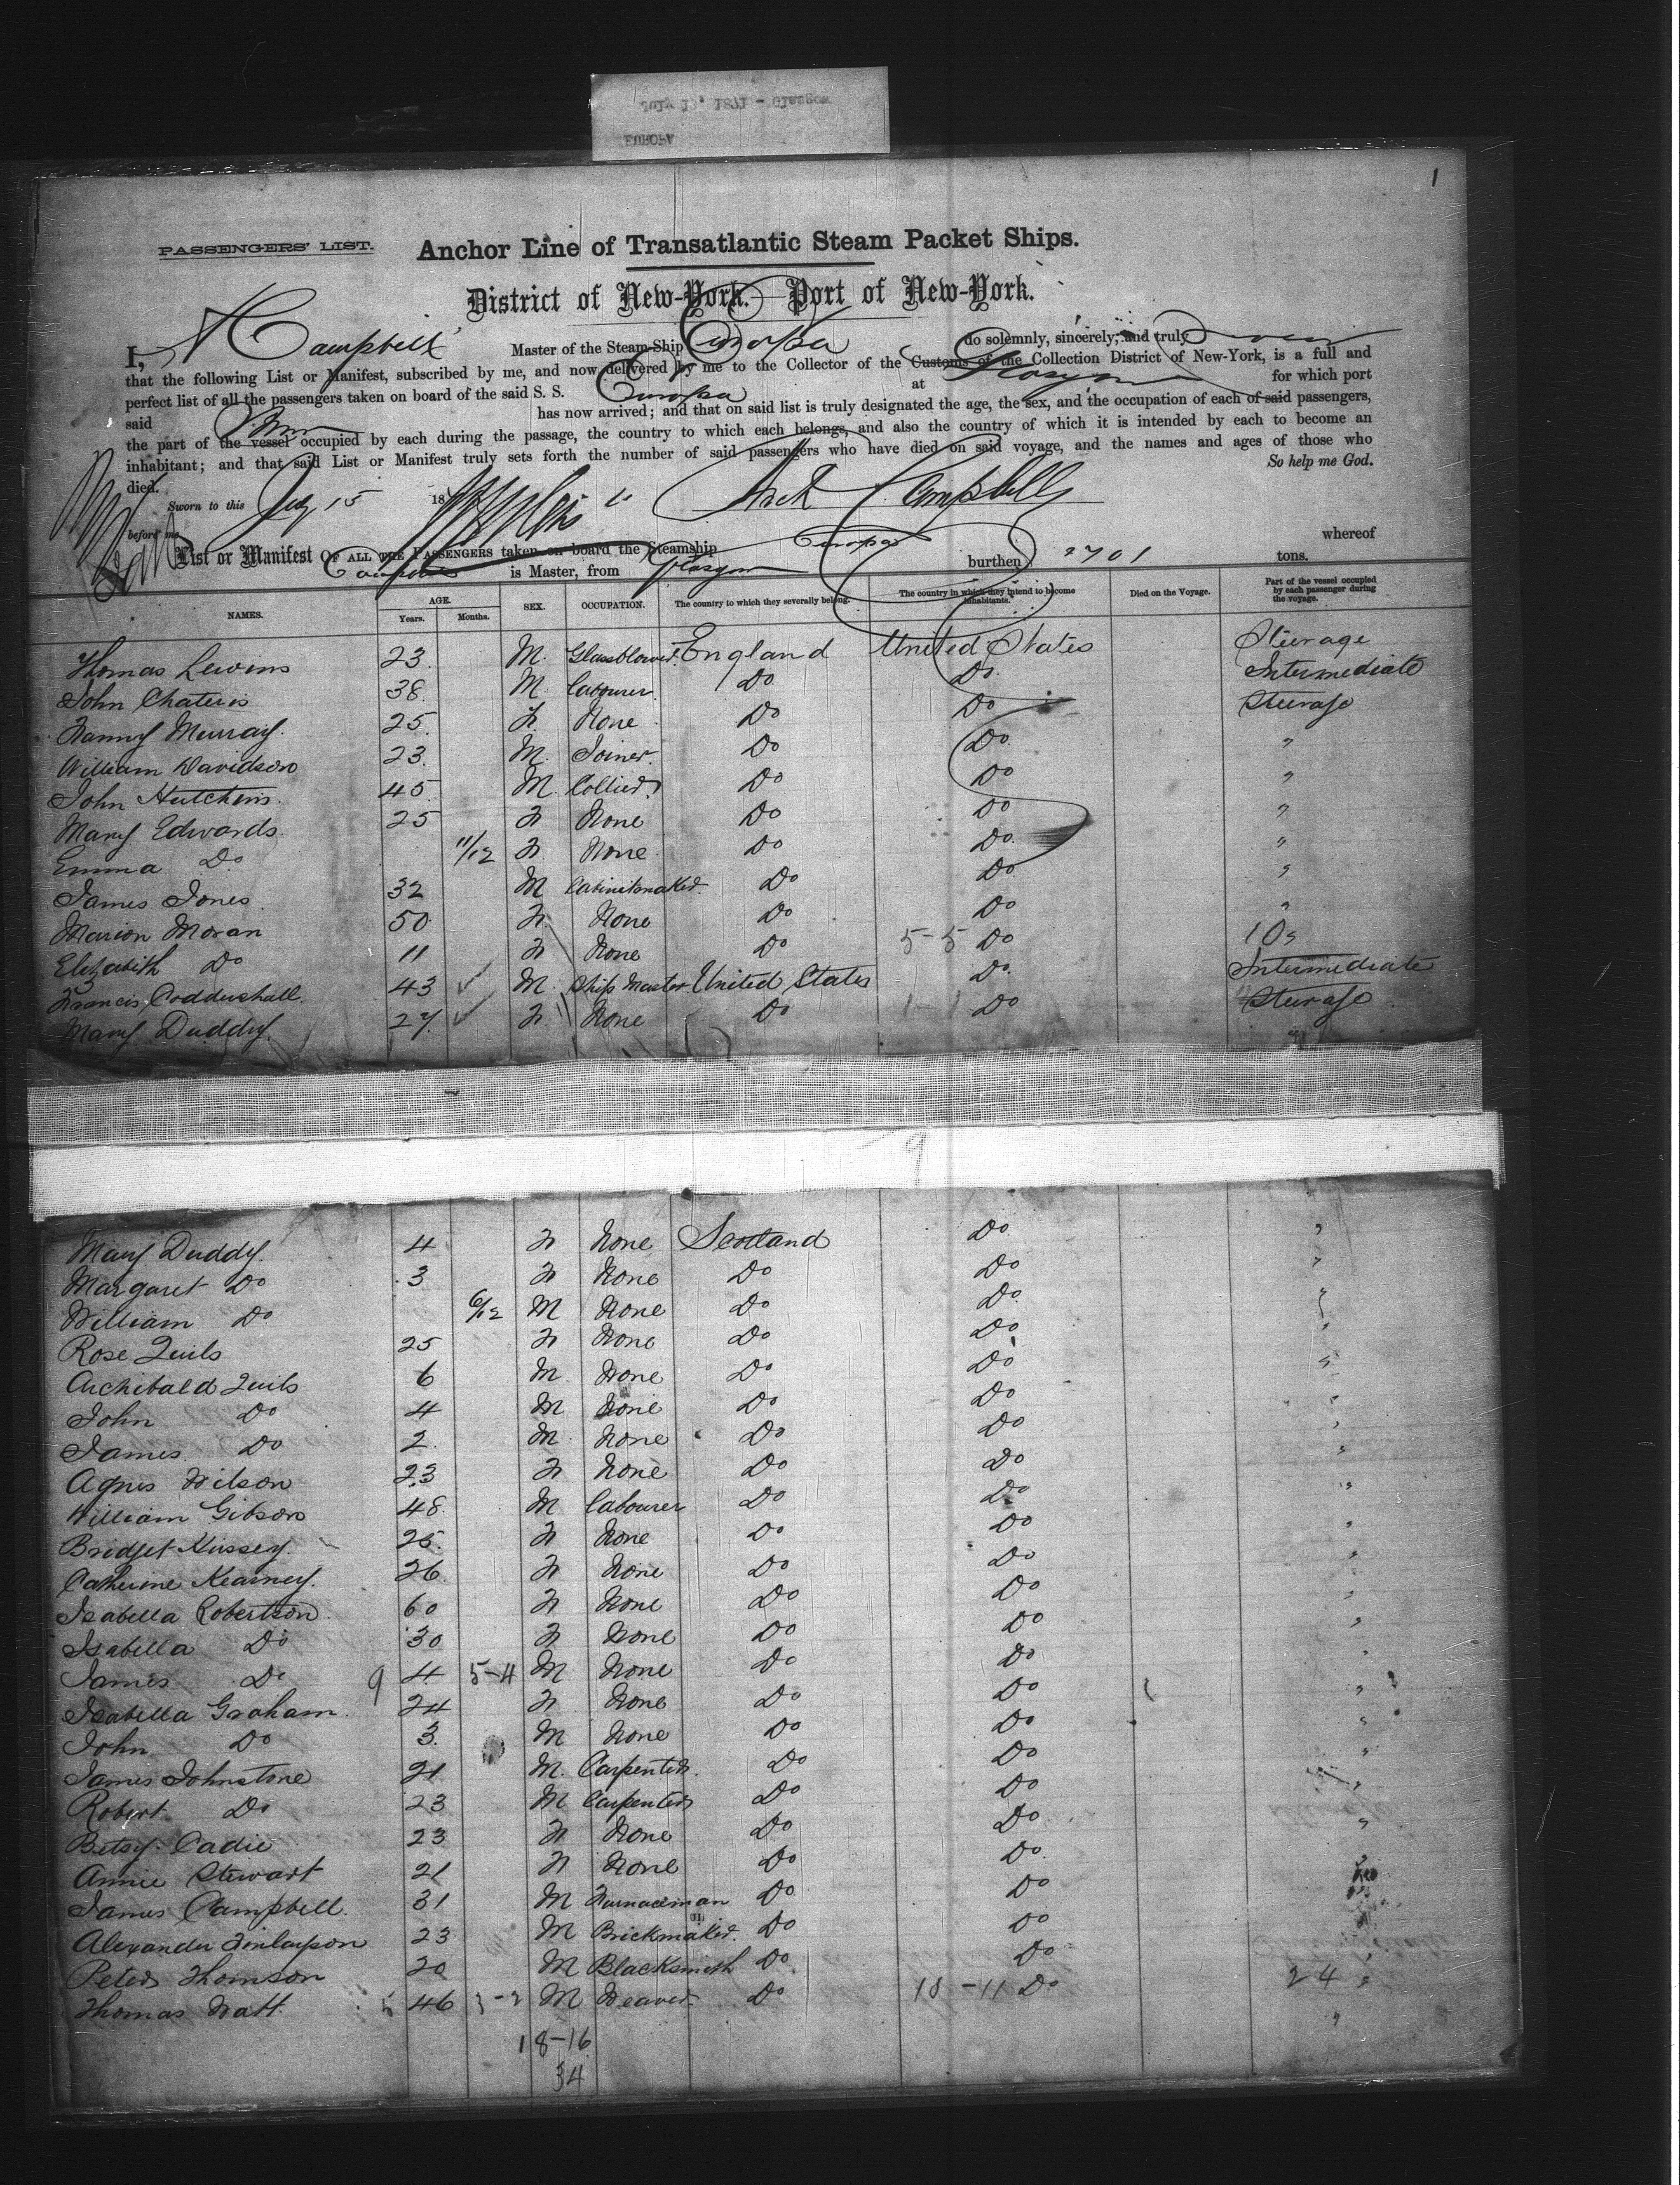 July 15, 1871 - Glasgow
EUROPA
1
PASSENGERS' LIST. Anchor Line of Transatlantic Steam Packet Ships.
District of New-York. Port of New-York.
I, A Campbell Master of the Steam-Ship Europa do solemnly, sincerely, and truly
that the following List or Manifest, subscribed by me, and now delivered by me to the Collector of the Customs of the Collection District of New-York, is a full and
perfect list of all the passengers taken on board of the said S. S. Europa at Glasgow for which port
said has now arrived; and that on said list is truly designated the age, the sex, and the occupation of each of said passengers,
the part of the vessel occupied by each during the passage, the country to which each belongs, and also the country of which it is intended by each to become an
inhabitant; and that said List or Manifest truly sets forth the number of said passengers who have died on said voyage, and the names and ages of those who
died. So help me God.
Sworn to this July 15 18 Arch Campbell
before me
List or Manifest OF ALL THE PASSENGERS taken on board the Steamship Europa whereof
Campbell is Master, from Glasgow burthen 2701 tons.
NAMES. AGE. Years. Months. SEX. OCCUPATION. The country to which they severally belong. The country in which they intend to become inhabitants. Died on the Voyage. Part of the vessel occupied by each passenger during the voyage.
Thomas Lewins 23 M. Glassblower. England United States Steerage
John Chateris 38 M Labourer. Do Do Intermediate
Fanny Murray. 25 F. None Do Do Steerage
William Davidson 23. M. Joiner. Do Do "
John Hutchins. 45 M. Collier Do Do "
Mary Edwards. 25 F None Do Do "
Emma Do 11/12 F. None Do Do "
James Jones. 32 M Cabinetmaker. Do Do "
Marion Moran 50 F. None Do Do "
Elizabeth Do 11 F None Do 5-5 Do 10s
Francis Coddershall. 43 ✓ M. Ship Master United States Do. Intermediate
Mary Duddy. 27 ✓ F. None Do 1-1 Do Steerage
9
Mary Duddy. 4 F None Scotland Do "
Margaret Do 3 F None Do Do "
William Do 6/12 M None Do Do "
Rose Quils 25 F None Do Do "
Archibald Quils 6 M None Do Do "
John Do 4 M None Do Do "
James Do 2. M. None Do Do "
Agnes Wilson 23 F None Do Do "
William Gibson 48 M Labourer Do Do "
Bridget Kissey. 25. F None Do Do "
Catherine Kearney. 26 F None Do Do "
Isabella Robertson. 60 F None Do Do "
Isabella Do 30 F None Do Do "
James Do 9 4 5-4 M None Do Do "
Isabella Graham. 24 F None Do Do "
John Do 3. M None Do Do "
James Johnstone 21 M. Carpenter. Do Do "
Robert Do 23 M Carpenter Do Do "
Betsy Cadie 23 F None Do Do "
Annie Stewart 21 F None Do Do.
James Campbell. 31 M Furnaceman Do Do
Alexander Finlayson 23 M Brickmaker. Do Do
Peter Thomson 20 M Blacksmith Do Do "
Thomas Watt 5 46 3-2 M Weaver. Do 10-11 Do 24 "
18-16
34